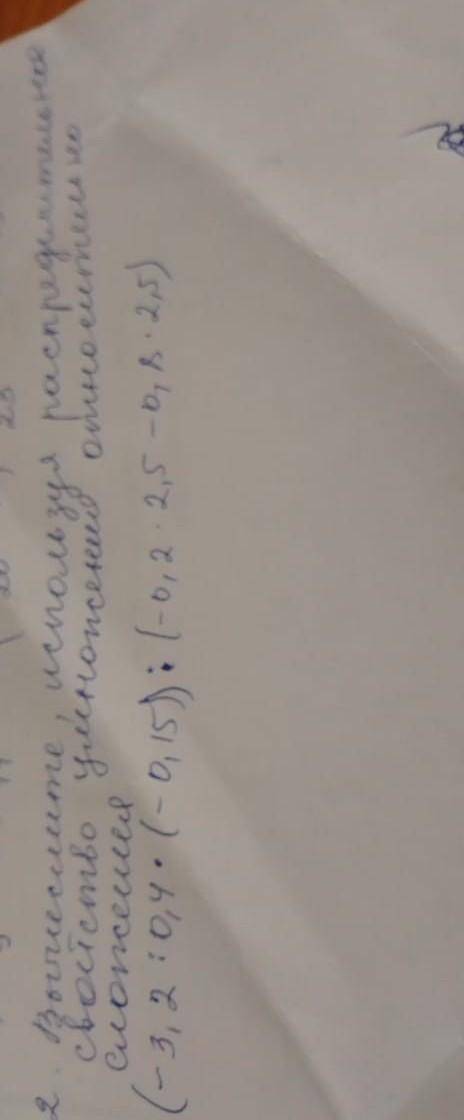 2. Вычислите, используя распределительное
свойство умножения относительно
сложения
(-3,2:0,4•(-0,15)):(-0,2·2,5-0,8·2,5)